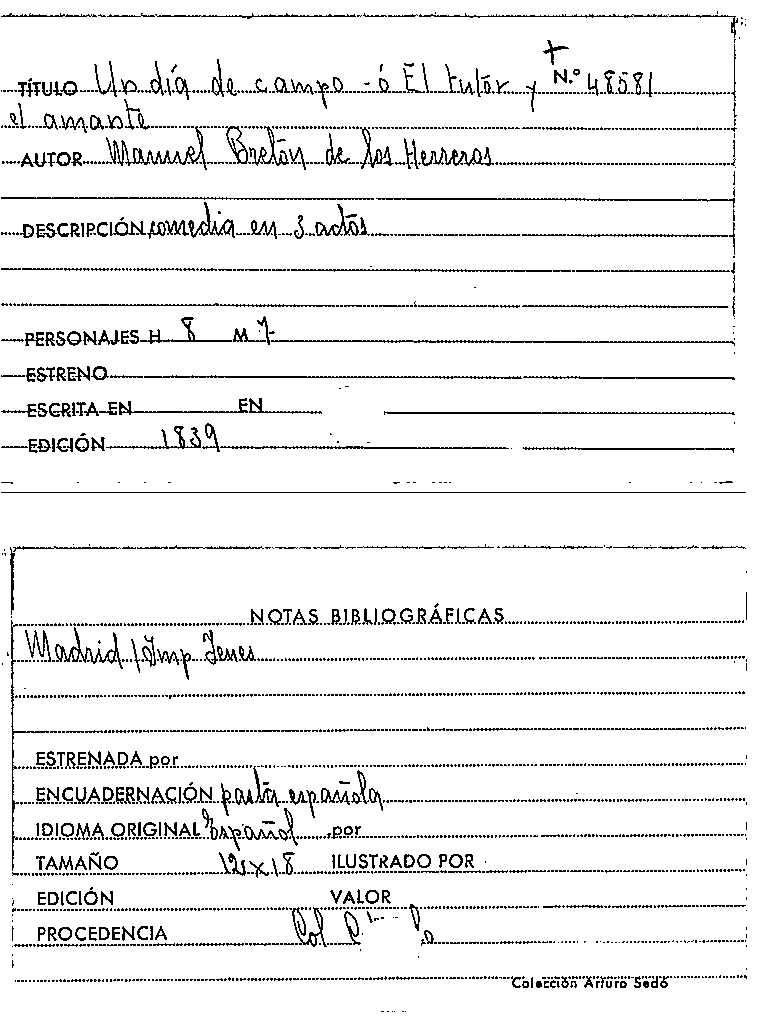 TÍTULO Un día de campo - ó El tutor y N.º 48581
el amante
AUTOR Manuel Bretón de los Herreros
DESCRIPCIÓN comedia en 3 actos
PERSONAJES H 8 M 7
ESTRENO
ESCRITA EN EN
EDICIÓN 1839
NOTAS BIBLIOGRÁFICAS
Madrid / Imp Yenes
ESTRENADA por
ENCUADERNACIÓN pasta española
IDIOMA ORIGINAL Español por
TAMAÑO 12x18 ILUSTRADO POR
EDICIÓN VALOR
PROCEDENCIA Col
Colección Arturo Sedó